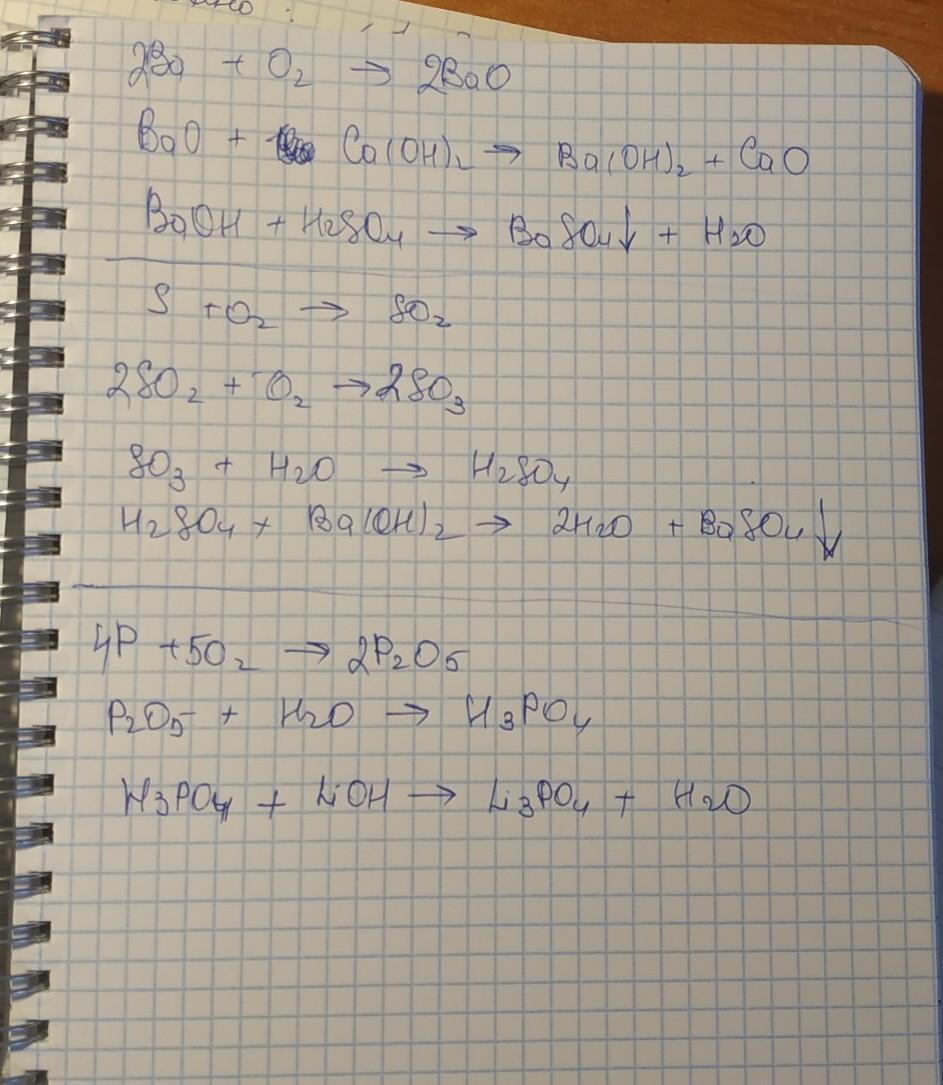 2Ba + O₂ → 2BaO
BaO + Ca(OH)₂ → Ba(OH)₂ + CaO
BaOH + H₂SO₄ → BaSO₄↓ + H₂O
S + O₂ → SO₂
2SO₂ + O₂ → 2SO₃
SO₃ + H₂O → H₂SO₄
H₂SO₄ + Ba(OH)₂ → 2H₂O + BaSO₄↓
4P + 5O₂ → 2P₂O₅
P₂O₅ + H₂O → H₃PO₄
H₃PO₄ + LiOH → Li₃PO₄ + H₂O